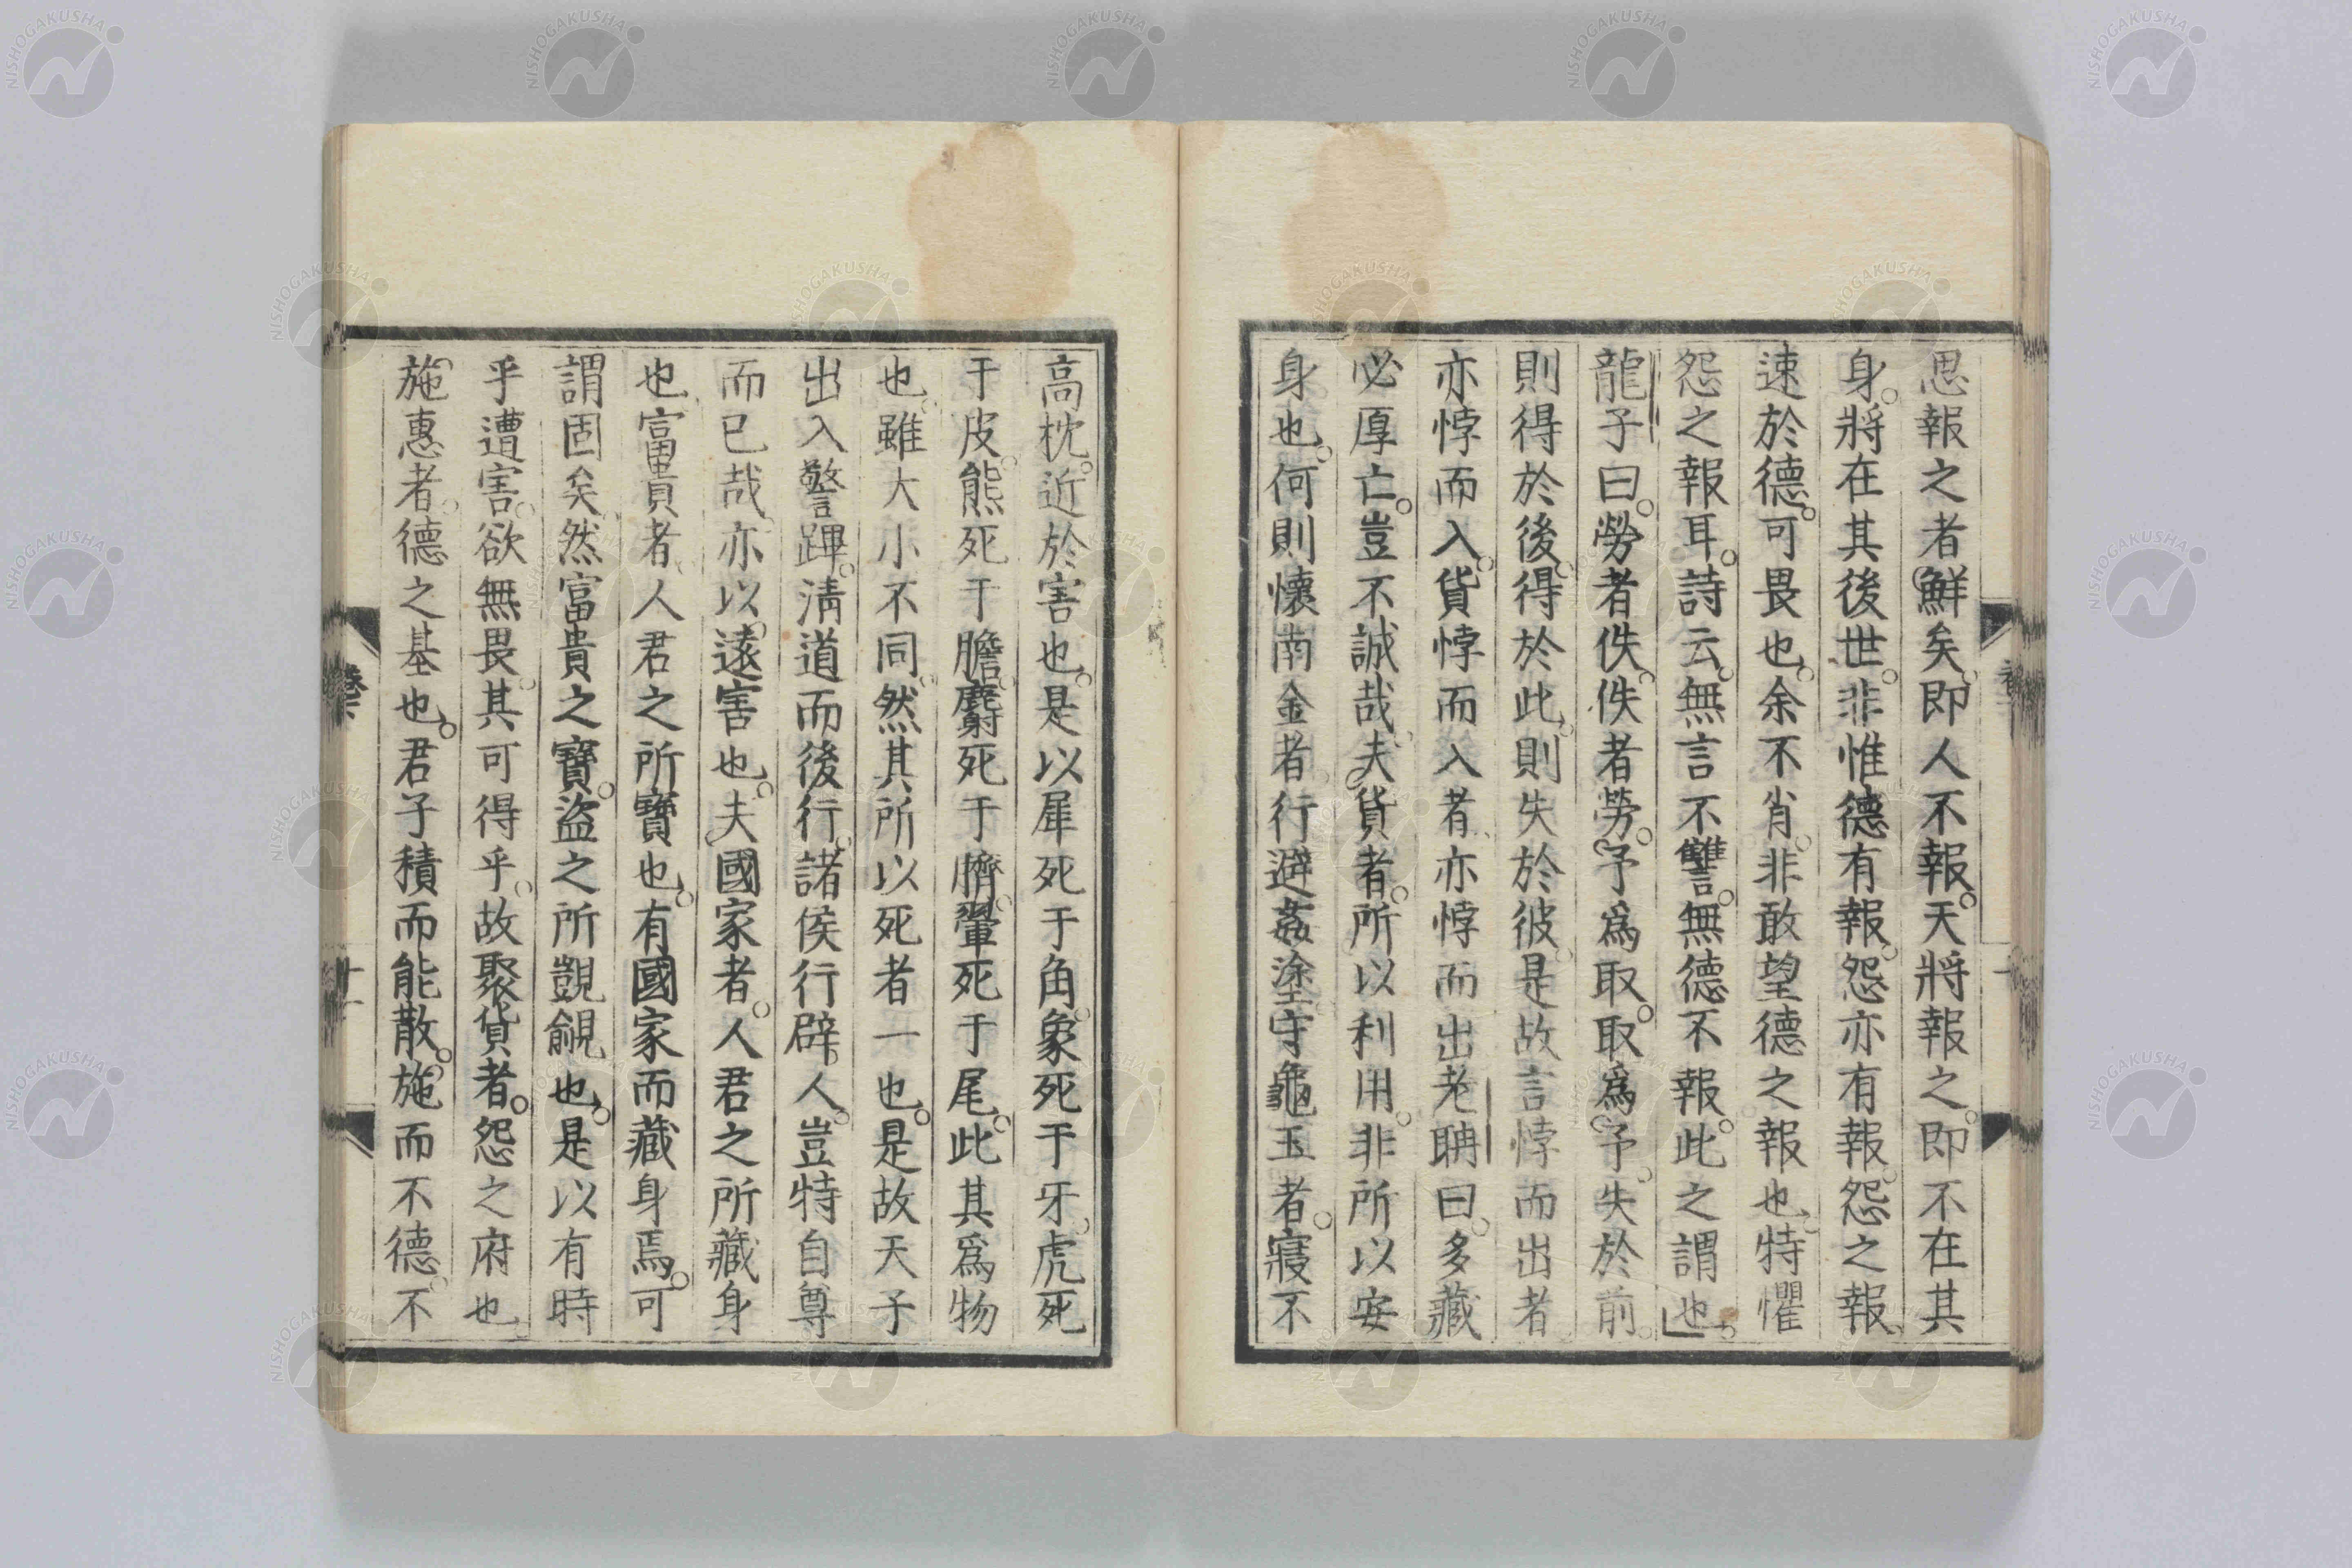 思報之者鮮矣。即人不報。天將報之。即不在其
身。將在其後世。非惟德有報。怨亦有報。怨之報、
速於德。可畏也。余不肖。非敢望德之報也。特懼
怨之報耳。詩云。無言不讐。無德不報。此之謂也。
龍子曰。勞者佚。佚者勞。予爲取。取爲予。失於前。
則得於後。得於此、則失於彼。是故言悖而出者
亦悖而入。貨悖而入者、亦悖而出。老聃曰。多藏
必厚亡。豈不誠哉。夫貨者。所以利用。非所以安
身也。何則懷南金者、行避姦塗。守龜玉者。寢不
高枕。近於害也。是以犀死于角。象死于牙。虎死
于皮。熊死于膽。麝死于臍。翬死于尾。此其爲物
也。雖大小不同。然其所以死者一也。是故天子
出入警蹕。淸道而後行。諸侯行辟。人豈特自尊
而已哉。亦以遠害也。夫國家者。人君之所藏身
也、富貴者、人君之所寶也。有國家而藏身焉。可
謂固矣。然富貴之寶。盜之所覬覦也。是以有時
乎遭害。欲無畏。其可得乎。故聚貨者。怨之府也。
施惠者。德之基也。君子積而能散。施而不德。不
卷下
十一
NISHOGAKUSHA